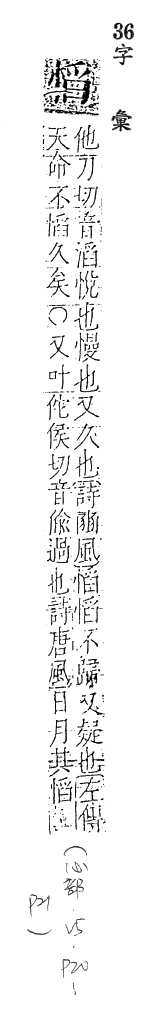 36
字彙
慆
他刀切音滔悅也慢也又久也詩豳風慆慆不歸又疑也左傳
天命不慆久矣○又叶佗侯切音偷過也詩唐風日月其慆
(心部 V5.P20-
P21)